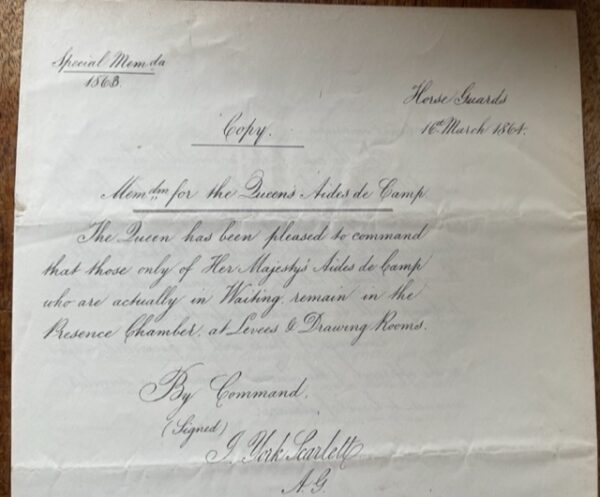 Special Memda
1863.
Horse Guards
16th March 1864.
Copy.
Memdm for the Queen's Aides de Camp
The Queen has been pleased to command
that those only of Her Majesty's Aides de Camp
who are actually in Waiting, remain in the
Presence Chamber, at Levees & Drawing Rooms.
By Command.
(Signed)
J. York Scarlett
A.G.